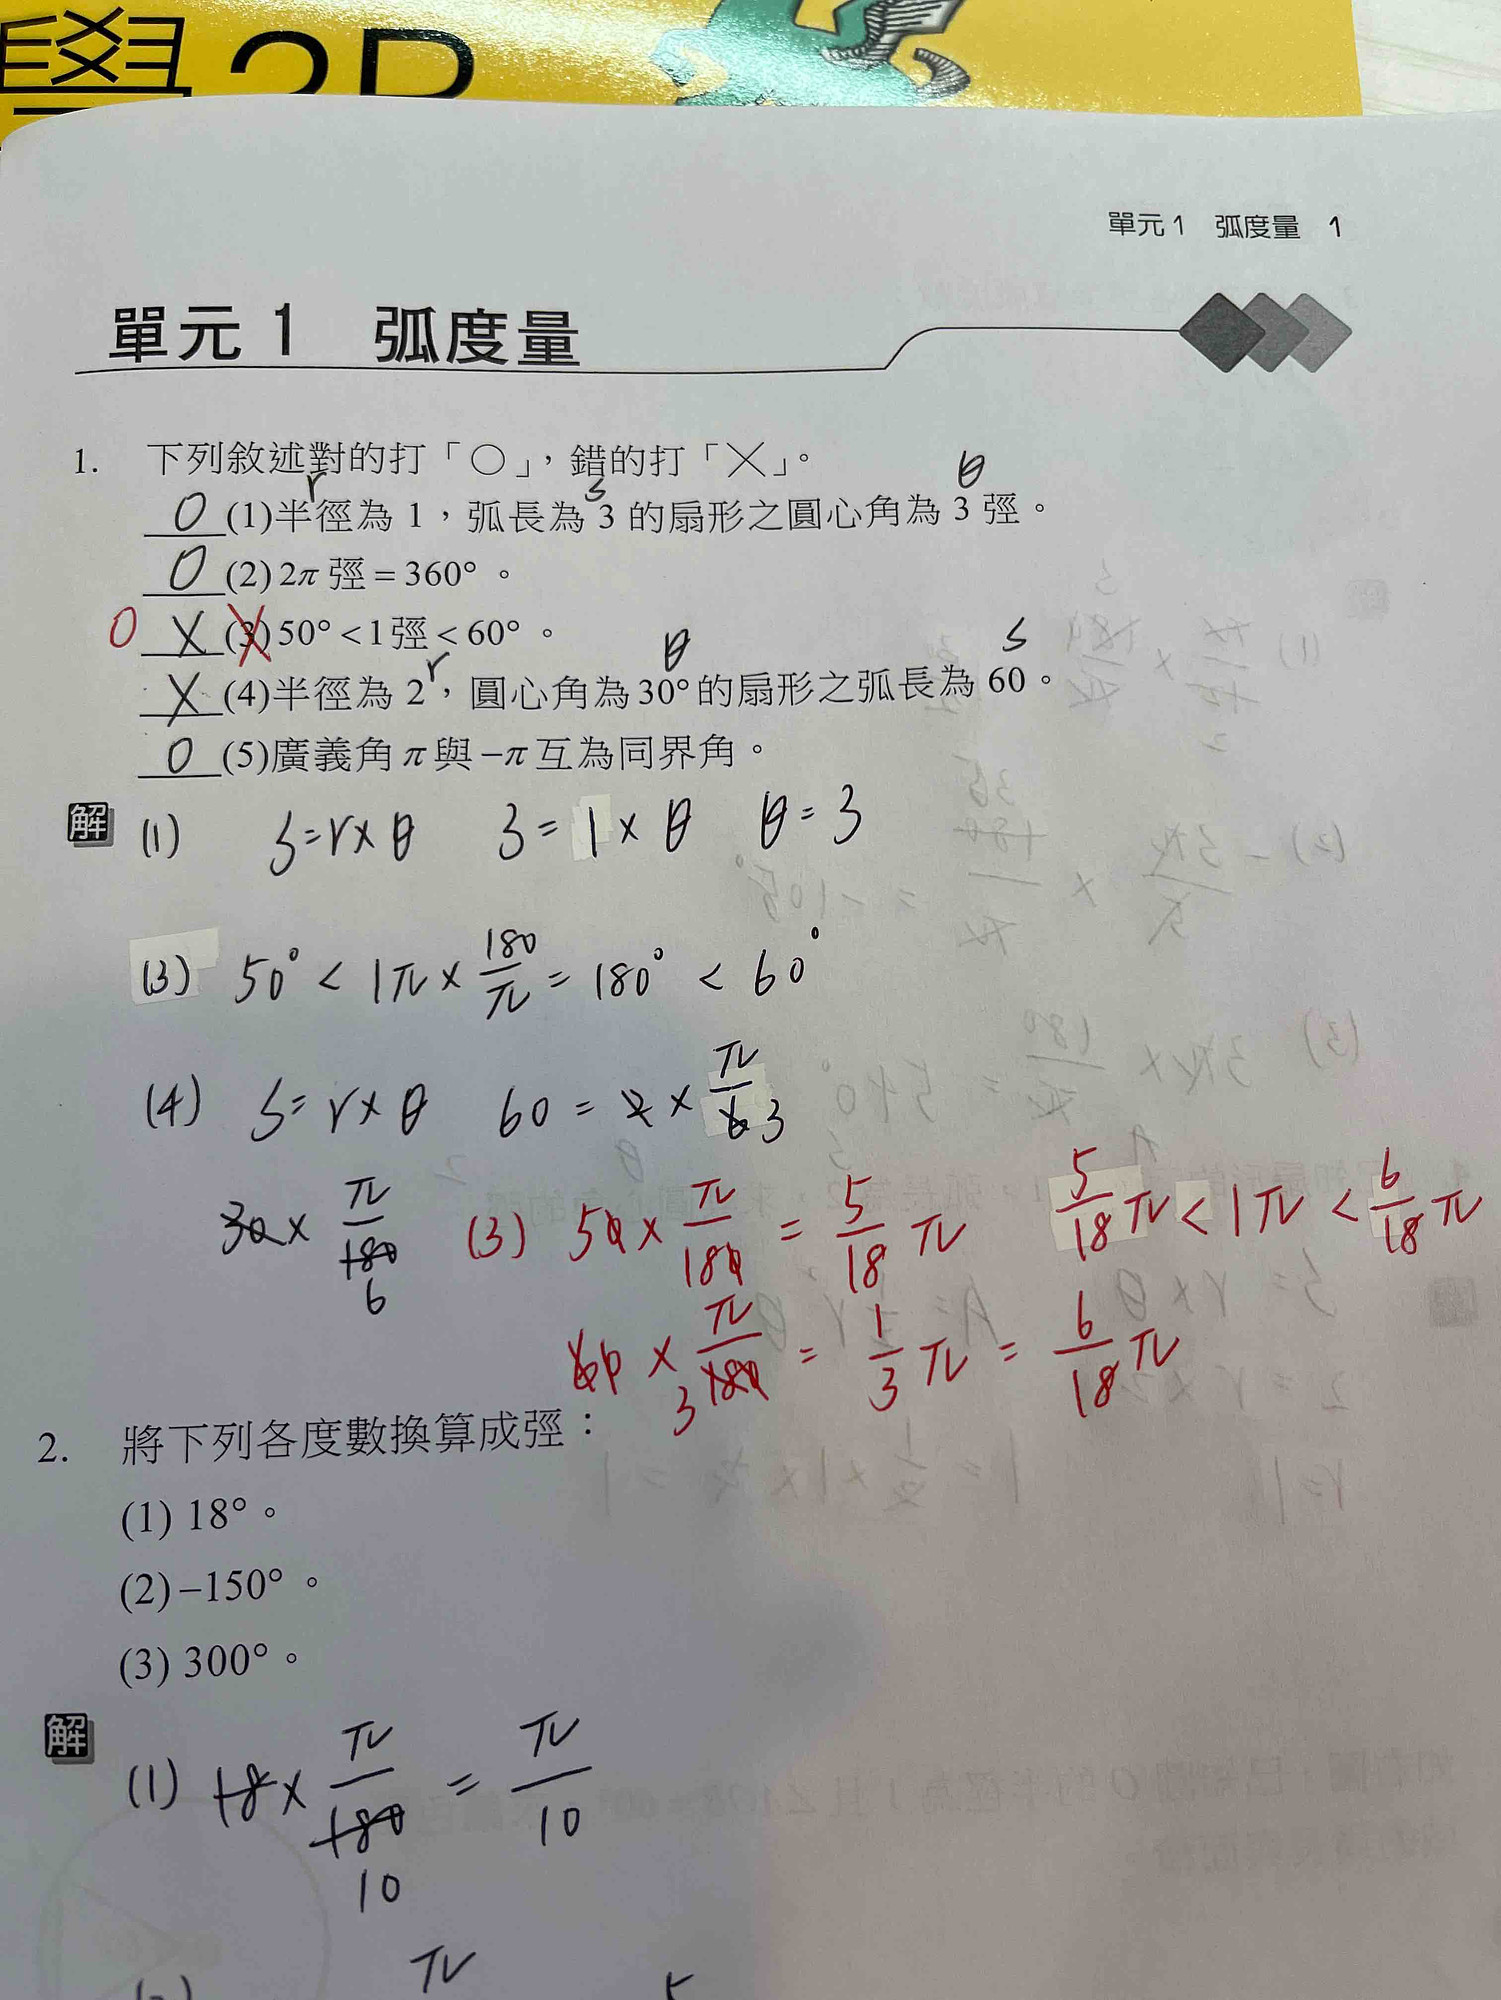 學 2B
單元 1 弧度量 1
單元 1 弧度量
1. 下列敘述對的打「○」，錯的打「╳」。
r s θ
O (1)半徑為 1，弧長為 3 的扇形之圓心角為 3 弳。
O (2) 2π 弳 = 360°。
O X (3) 50° < 1 弳 < 60°。
r θ s
X (4)半徑為 2，圓心角為 30° 的扇形之弧長為 60。
O (5)廣義角 π 與 –π 互為同界角。
解 (1) S = r × θ 3 = 1 × θ θ = 3
(3) 50° < 1π × 180/π = 180° < 60°
(4) S = r × θ 60 = 2 × π/6 3
30 × π/180 6
(3) 50 × π/180 = 5/18 π 5/18 π < 1π < 6/18 π
60 × π/180 3 = 1/3 π = 6/18 π
2. 將下列各度數換算成弳：
(1) 18°。
(2) –150°。
(3) 300°。
解 (1) 18 × π/180 10 = π/10
π 5